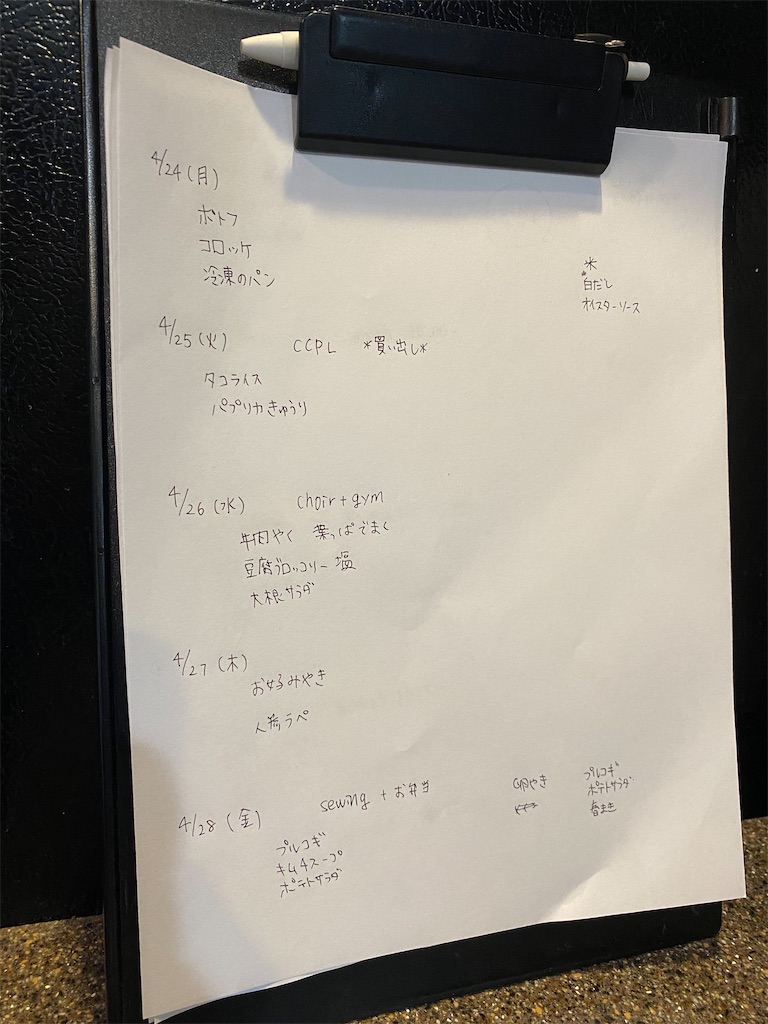 4/24(月)
ポトフ
コロッケ
冷凍のパン
米
白だし
オイスターソース
4/25(火) CCPL *買い出し*
タコライス
パプリカきゅうり
4/26(水) choir + gym
牛肉やく 葉っぱでまく
豆腐ブロッコリー塩
大根サラダ
4/27(木)
お好みやき
人参ラペ
4/28(金) sewing + お弁当
卵やき
プルコギ
ポテトサラダ
春まき
プルコギ
キムチスープ
ポテトサラダ